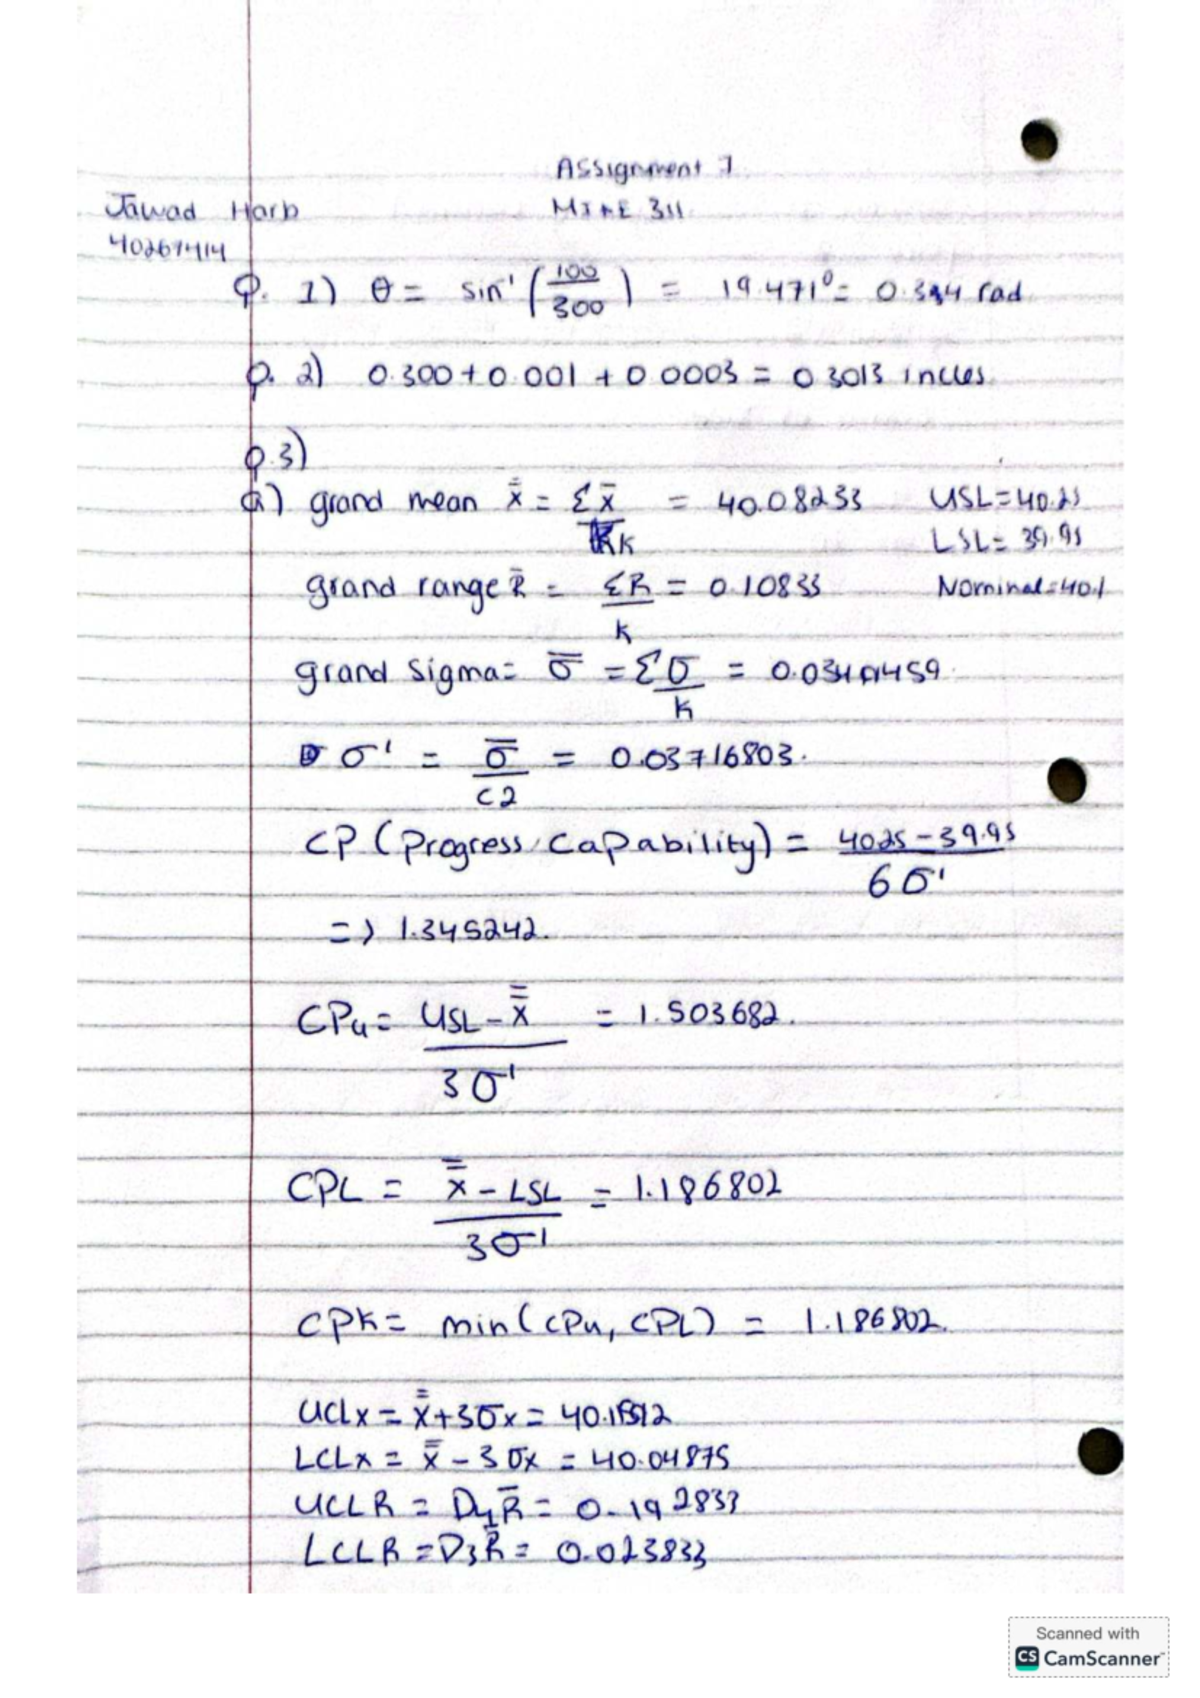 Assignment 7
Jawad Harb
MIAE 311
40267414
Q. 1) θ = sin⁻¹ (100/300) = 19.471° = 0.344 rad
Q. 2) 0.300 + 0.001 + 0.0003 = 0.3013 inches.
Q.3)
a) grand mean x̿ = Σx̄/k = 40.08233 USL=40.25
LSL= 39.95
grand range R̄ = ΣR/k = 0.10833 Nominal=40.1
grand Sigma= σ̄ = Σσ/k =
σ' = σ̄/c2 = 0.03716803.
CP (Progress Capability) = 4025 - 39.95/6σ'
=> 1.345242.
CPu = USL - x̿/3σ' = 1.503682.
CPL = x̿ - LSL/3σ' = 1.186802
CPK = min(CPu, CPL) = 1.186802.
UCLx = x̿+3σx =
LCLx = x̿ - 3σx = 40.04875
UCLR = D4R̄ = 0.192833
LCLR = D3R̄ = 0.023833
Scanned with
CS CamScanner™